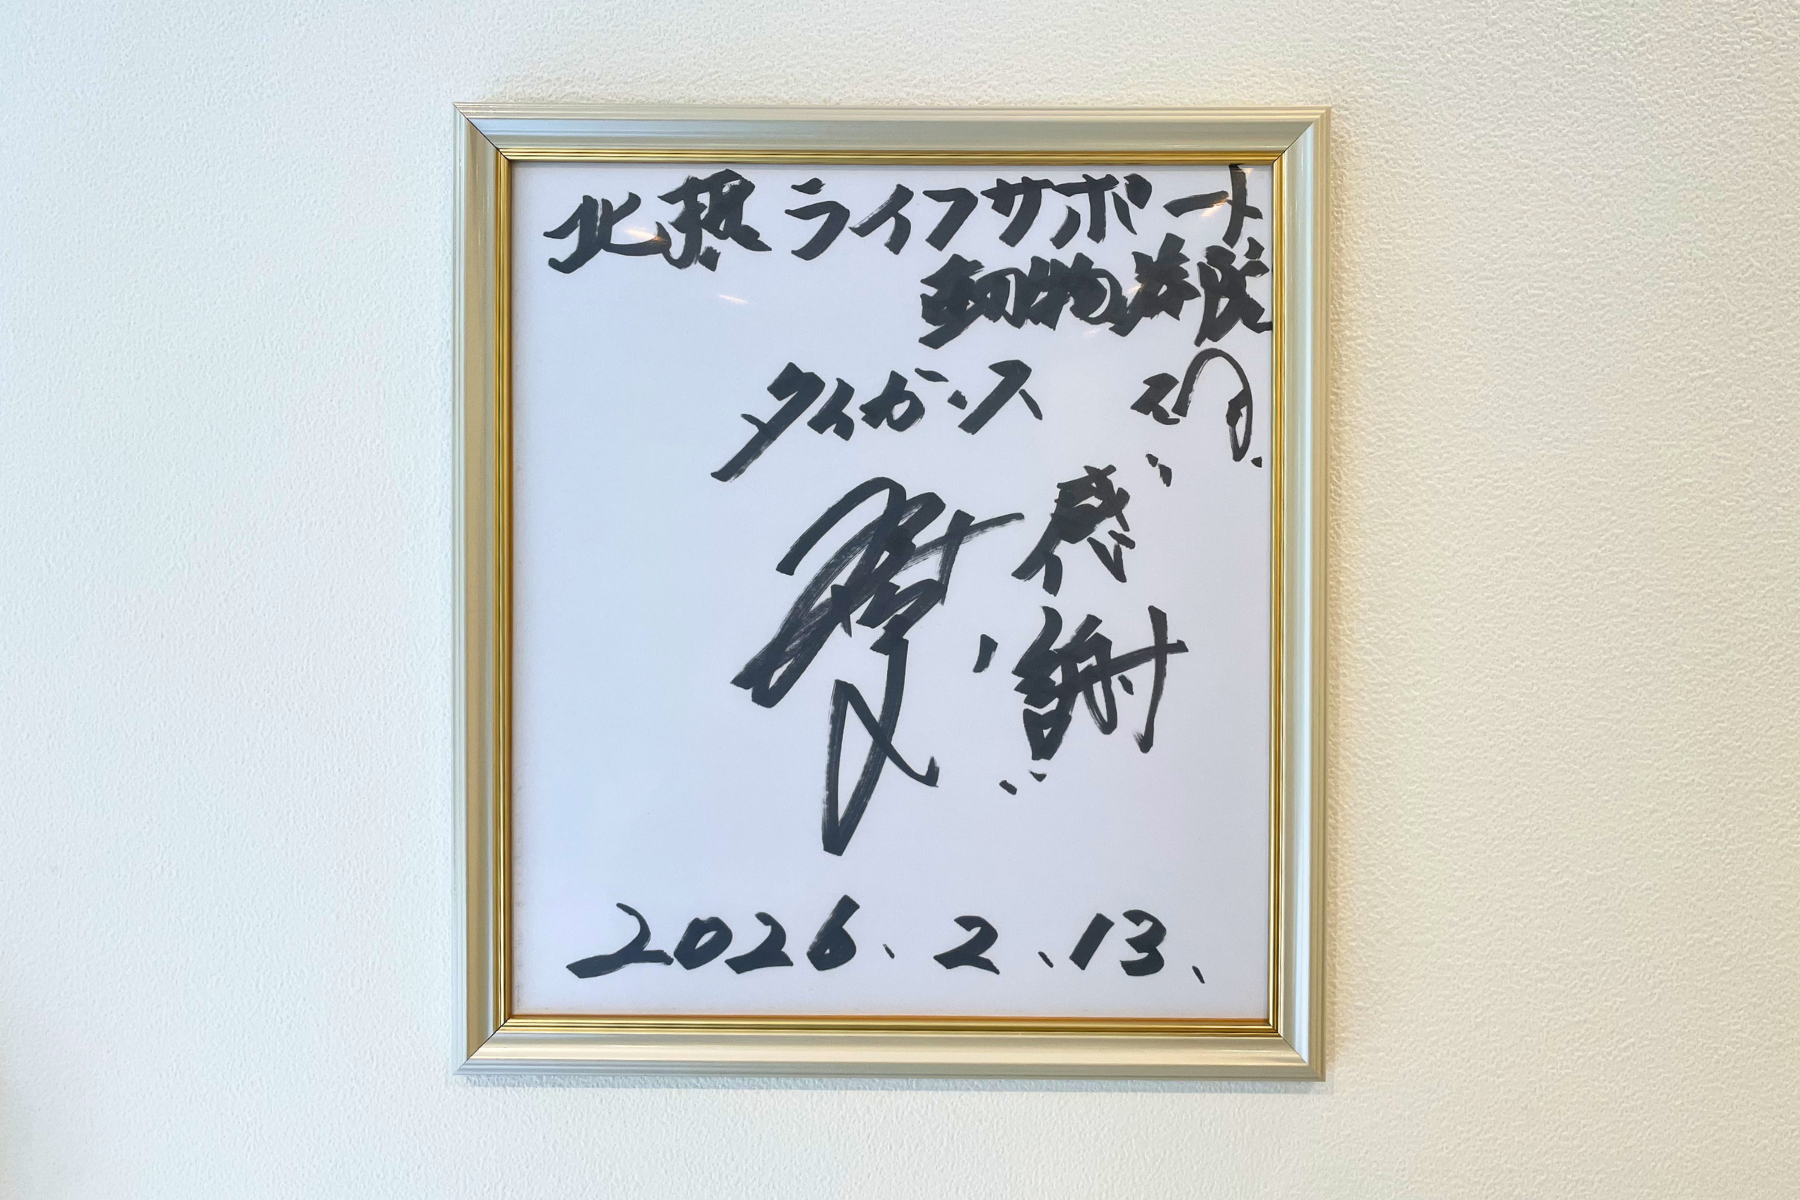 北摂ライフサポート
動物病院
さん江
タイガース
感謝
2026.2.13.